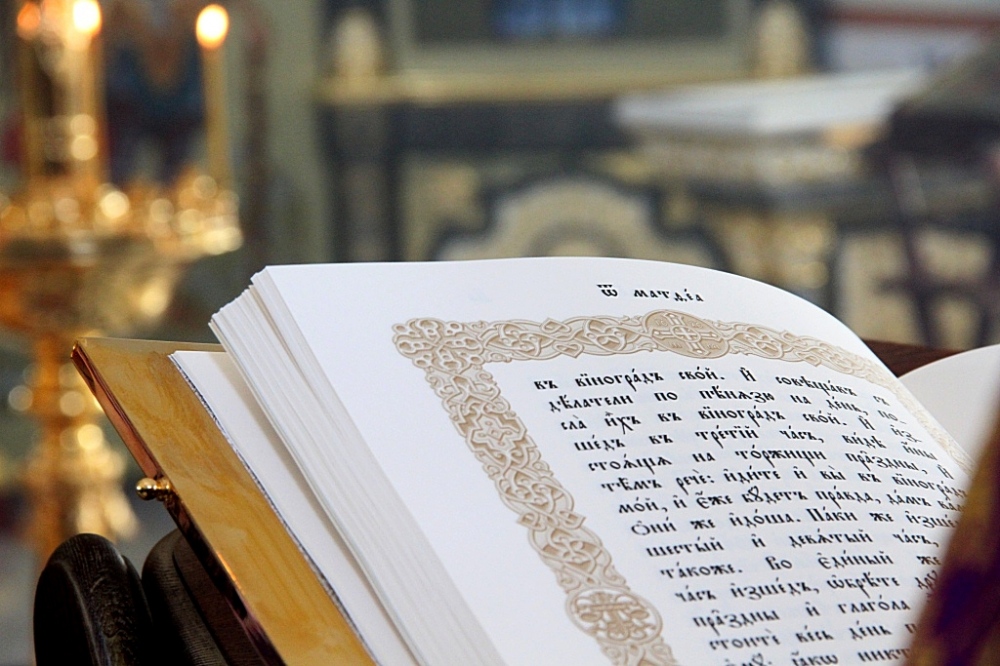 Ѿ МАТѲЕ́А
въ вїногра́дъ сво́й. И҆ совѣща́въ съ
дѣ́латели по пѣ́нѧзю на де́нь, по-
сла̀ и҆̀хъ въ вїногра́дъ сво́й. И҆ и҆з-
ше́дъ въ тре́тїй ча́съ, ви́дѣ и҆́ны
стоѧ́щѧ на то́ржищи пра́здны, и҆
тѣ̑мъ речѐ: и҆ди́те и҆ вы̀ въ вїногра́дъ
мо́й, и҆ є҆́же бꙋ́детъ пра́вда, да́мъ ва́мъ.
Ѻ҆ни́ же и҆до́ша. Па́ки же и҆зше́дъ
шесты́й и҆ девѧ́тый ча́съ,
та́коже. Во є҆ди́ный же
ча́съ и҆зше́дъ, ѡ҆брѣ́те дрꙋ
пра̑здны и҆ глаго́ла
стоитѐ ве́сь де́нь
є҆мꙋ̀: ꙗ҆́кѡ никто́